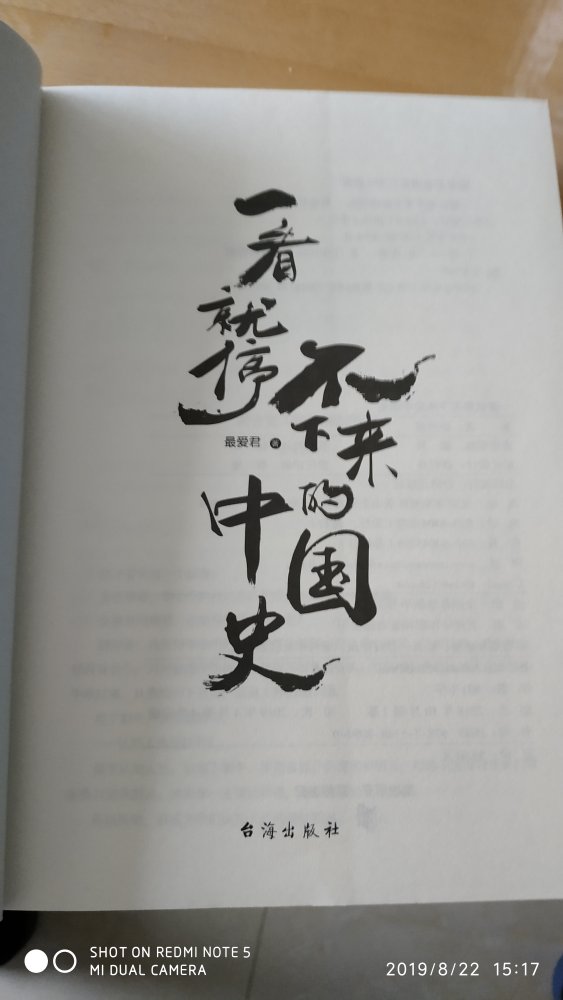 一看
就停不下来的
中国史
最爱君 著
台海出版社
SHOT ON REDMI NOTE 5
MI DUAL CAMERA
2019/8/22 15:17